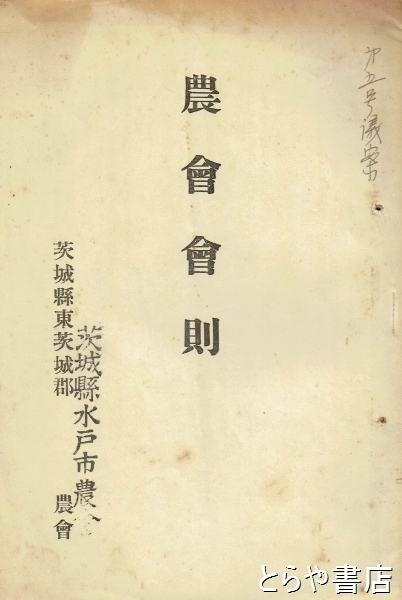 㐧五号議案
農會會則
茨城縣東茨城郡 農會
茨城縣水戸市農會
とらや書店